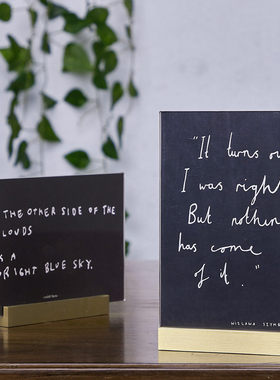 THE OTHER SIDE OF THE
LOUDS
A
BRIGHT BLUE SKY.
"It turns ou
I was righ
But nothin
has come
of it."
WISŁAWA SZYM